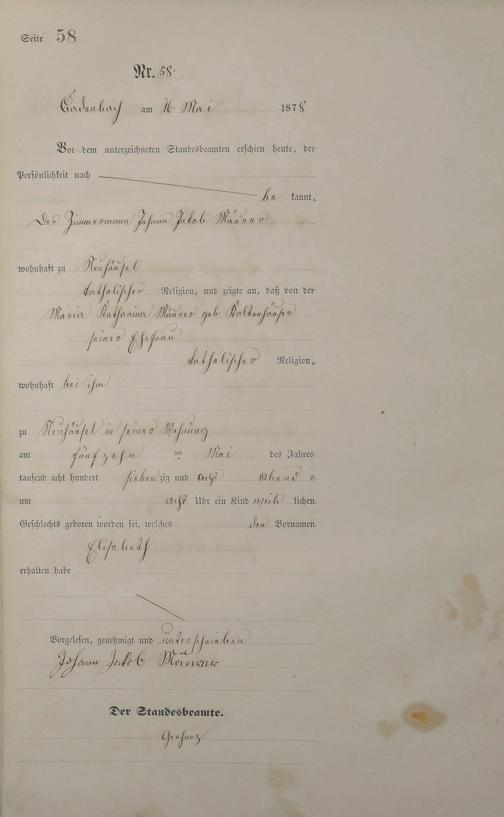 Seite 58
Nr. 58.
Cadenbach am 16. Mai 1878
Vor dem unterzeichneten Standesbeamten erschien heute, der
Persönlichkeit nach
be kannt,
Der Zimmermann Johann Jakob Mäurer
wohnhaft zu Neuhäusel
katholischer Religion, und zeigte an, daß von der
Maria Katharina Mäurer geb. Kaltenhäuser
seiner Ehefrau
katholischer Religion,
wohnhaft bei ihm
zu Neuhäusel in seiner Wohnung
am fünfzehn ten Mai des Jahres
tausend acht hundert sieben zig und acht Abend s
um acht Uhr ein Kind weib lichen
Geschlechts geboren worden sei, welches den Vornamen
Elisabeth
erhalten habe
Vorgelesen, genehmigt und unterschrieben
Johann Jakob Mäurer
Der Standesbeamte.
Gerharz